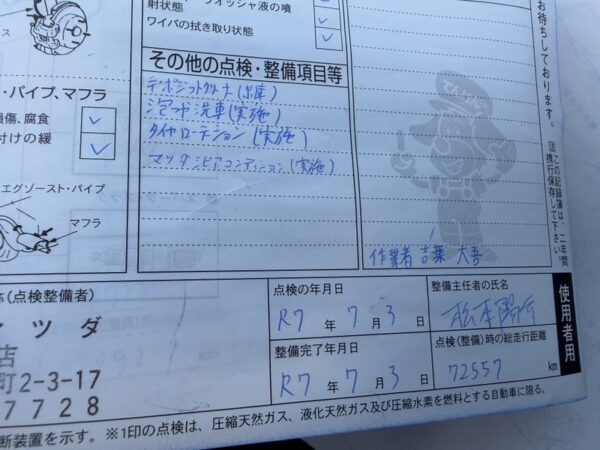 ウォッシャ液の噴
射状態
ワイパの拭き取り状態
その他の点検・整備項目等
デポジットクリーナ(出庫)
泡ムチ洗車(実施)
タイヤローテーション(実施)
マツダ シビアコンディション(実施)
・パイプ、マフラ
損傷、腐食
付けの緩
エグゾースト・パイプ
マフラ
てんけんくん
お待ちしております。
この記録簿は、二年間
携行保存して下さい。
作業者 吉葉 大吾
称(点検整備者)
マツダ
店
町2-3-17
7728
点検の年月日
R7年7月3日
整備主任者の氏名
整備完了年月日
R7年7月3日
点検(整備)時の総走行距離
72557 km
使用者用
断装置を示す。 ※1印の点検は、圧縮天然ガス、液化天然ガス及び圧縮水素を燃料とする自動車に限る。